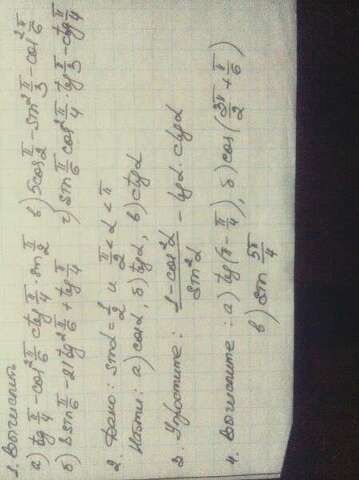 1. Вычислить
а) tg π/4 - cos² π/6 · ctg π/4 · sin π/2   в) 5cos π/2 - sin² π/3 - cos² π/6
б) 8 sin π/6 - 21 tg² π/6 + tg π/4   г) sin π/6 cos² π/4 tg π/3 - ctg π/4
2. Дано: sin α = 1/2 и π/2 < α < π
Найти: а) cos α, б) tg α, в) ctg α
3. Упростите: (1 - cos² α)/(sin² α) - tg α · ctg α
4. Вычислите: а) tg(π - π/4), б) cos(3π/2 + π/6)
в) sin 5π/4